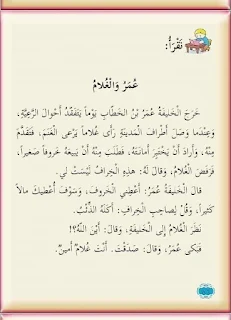 نَقْرَأُ:
عُمَرُ وَالْغُلَامُ
خَرَجَ الْخَلِيفَةُ عُمَرُ بْنُ الْخَطَّابِ يَوْماً يَتَفَقَّدُ أَحْوَالَ الرَّعِيَّةِ،
وَعِنْدَما وَصَلَ أَطْرافَ الْمَدينَةِ رَأى غُلاماً يَرْعى الْغَنَمَ، فَتَقَدَّمَ
مِنْهُ، وَأَرادَ أَنْ يَخْتَبِرَ أَمانَتَهُ، فَطَلَبَ مِنْهُ أَنْ يَبيعَهُ خَروفاً صَغيراً،
فَرَفَضَ الْغُلامُ، وَقالَ لَهُ: هذِهِ الْخِرافُ لَيْسَتْ لي.
قالَ الْخَليفَةُ عُمَرُ: أَعْطِني الْخَروفَ، وَسَوْفَ أُعْطيكَ مالاً
كَثيراً، وَقُلْ لِصاحِبِ الْخِرافِ: أَكَلَهُ الذِّئْبُ.
نَظَرَ الْغُلامُ إِلى الْخَليفَةِ، وَقالَ: أَيْنَ اللهُ؟!
فَبَكى عُمَرُ، وَقالَ: صَدَقْتَ. أَنْتَ غُلامٌ أَمينٌ.